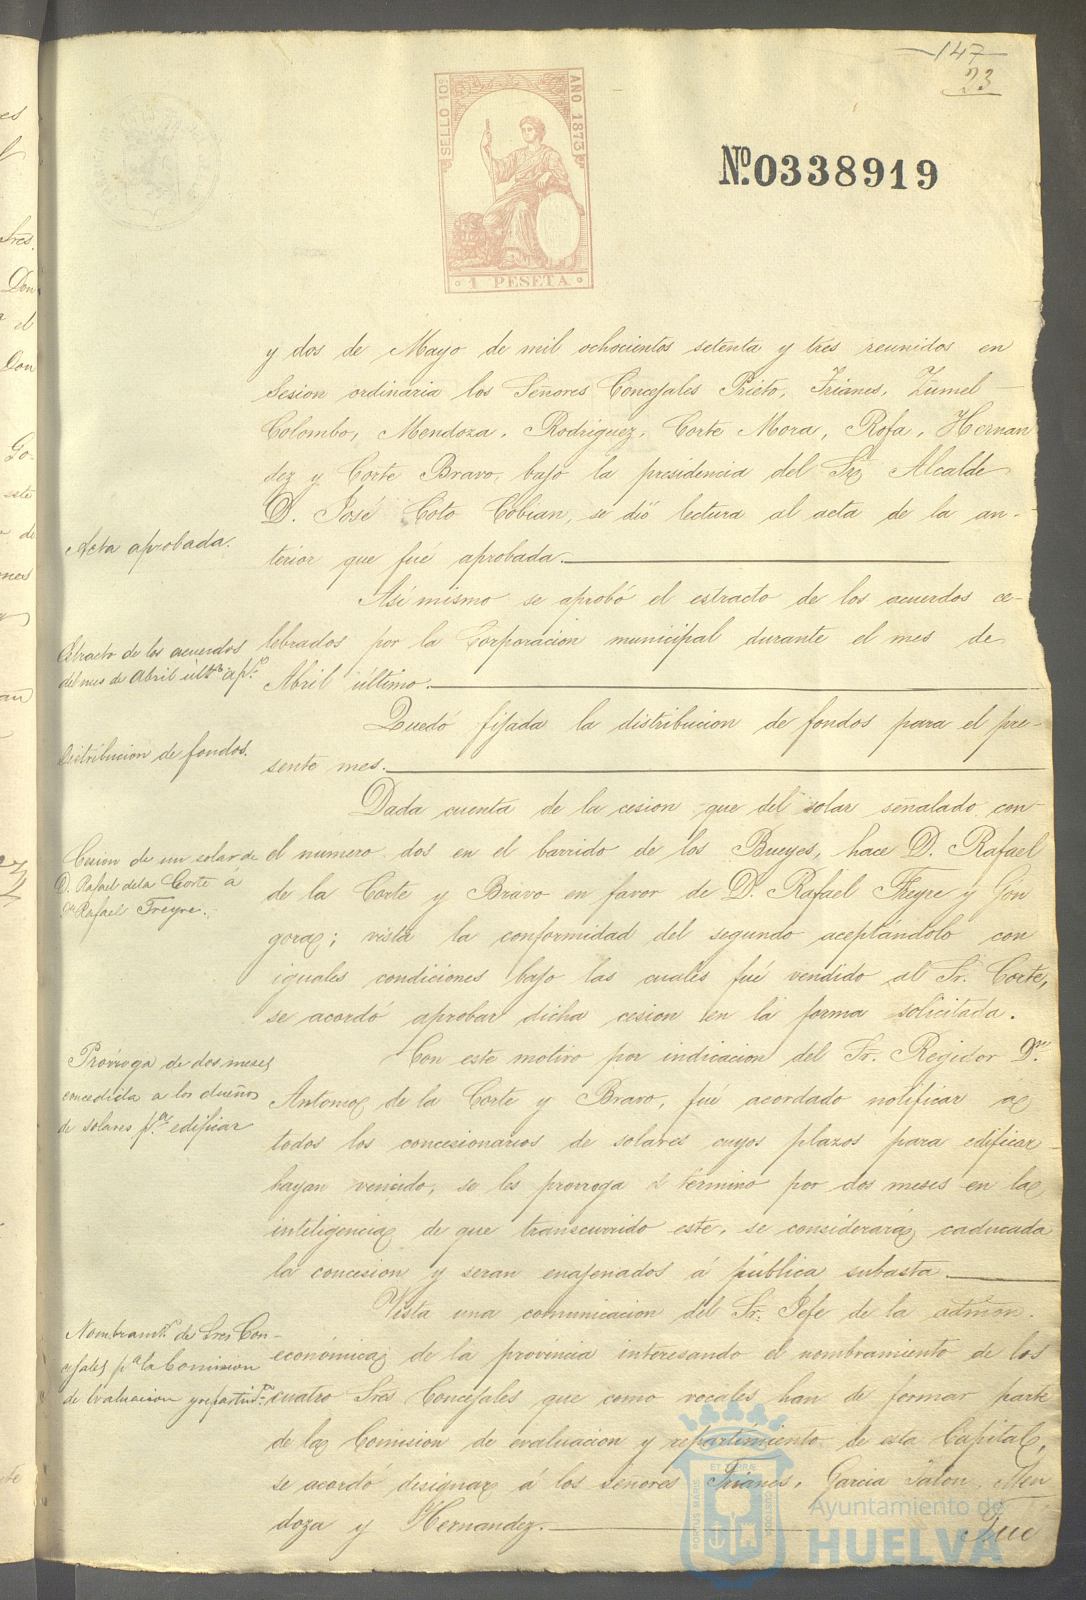 147
23
SELLO 10º
AÑO 1873
1 PESETA
Nº 0338919
y dos de Mayo de mil ochocientos setenta y tres reunidos en
Sesion ordinaria los Señores Concejales Prieto, Trianes, Zumel
Colombo, Mendoza, Rodriguez, Corte Mora, Rofa, Hernan
dez y Corte Bravo, bajo la presidencia del Sr Alcalde
D. José Coto Cobian, se dió lectura al acta de la an-
Acta aprobada.
terior que fué aprobada.
Así mismo se aprobó el estracto de los acuerdos ce-
Estracto de los acuerdos
del mes de Abril últº
lebrados por la Corporacion municipal durante el mes de
Abril último.
Quedó fijada la distribucion de fondos para el pre-
Distribucion de fondos.
sente mes.
Dada cuenta de la cesion que del solar señalado con
Cesion de un solar de
D. Rafael de la Corte á
Dn Rafael Freyre.
el número dos en el barrido de los Bueyes, hace D. Rafael
de la Corte y Bravo en favor de D. Rafael Freyre y Gón
gora; vista la conformidad del segundo aceptándolo con
iguales condiciones bajo las cuales fué vendido al Sr. Corte,
se acordó aprobar dicha cesion en la forma solicitada.
Prórroga de dos meses
concedida a los dueños
de solares pª edificar
Con este motivo por indicacion del Sr. Regidor Dn
Antonio de la Corte y Bravo, fué acordado notificar á
todos los concesionarios de solares cuyos plazos para edificar
hayan vencido, se les prorroga el término por dos meses en la
inteligencia de que transcurrido este, se considerará caducada
la concesion y seran enajenados á pública subasta.
Vista una comunicacion del Sr. Jefe de la admon.
Nombramto de tres Con-
cejales pª la Comision
de evaluacion y repartimto
económica de la provincia interesando el nombramiento de los
cuatro Sres Concejales que como vocales han de formar parte
de la Comision de evaluacion y repartimiento de esta Capital,
se acordó designar á los señores Trianes, Garcia Talon, Men
doza y Hernandez.
Que
PORTUS MARIS
ET TERRAE
CUSTODIA
Ayuntamiento de
HUELVA